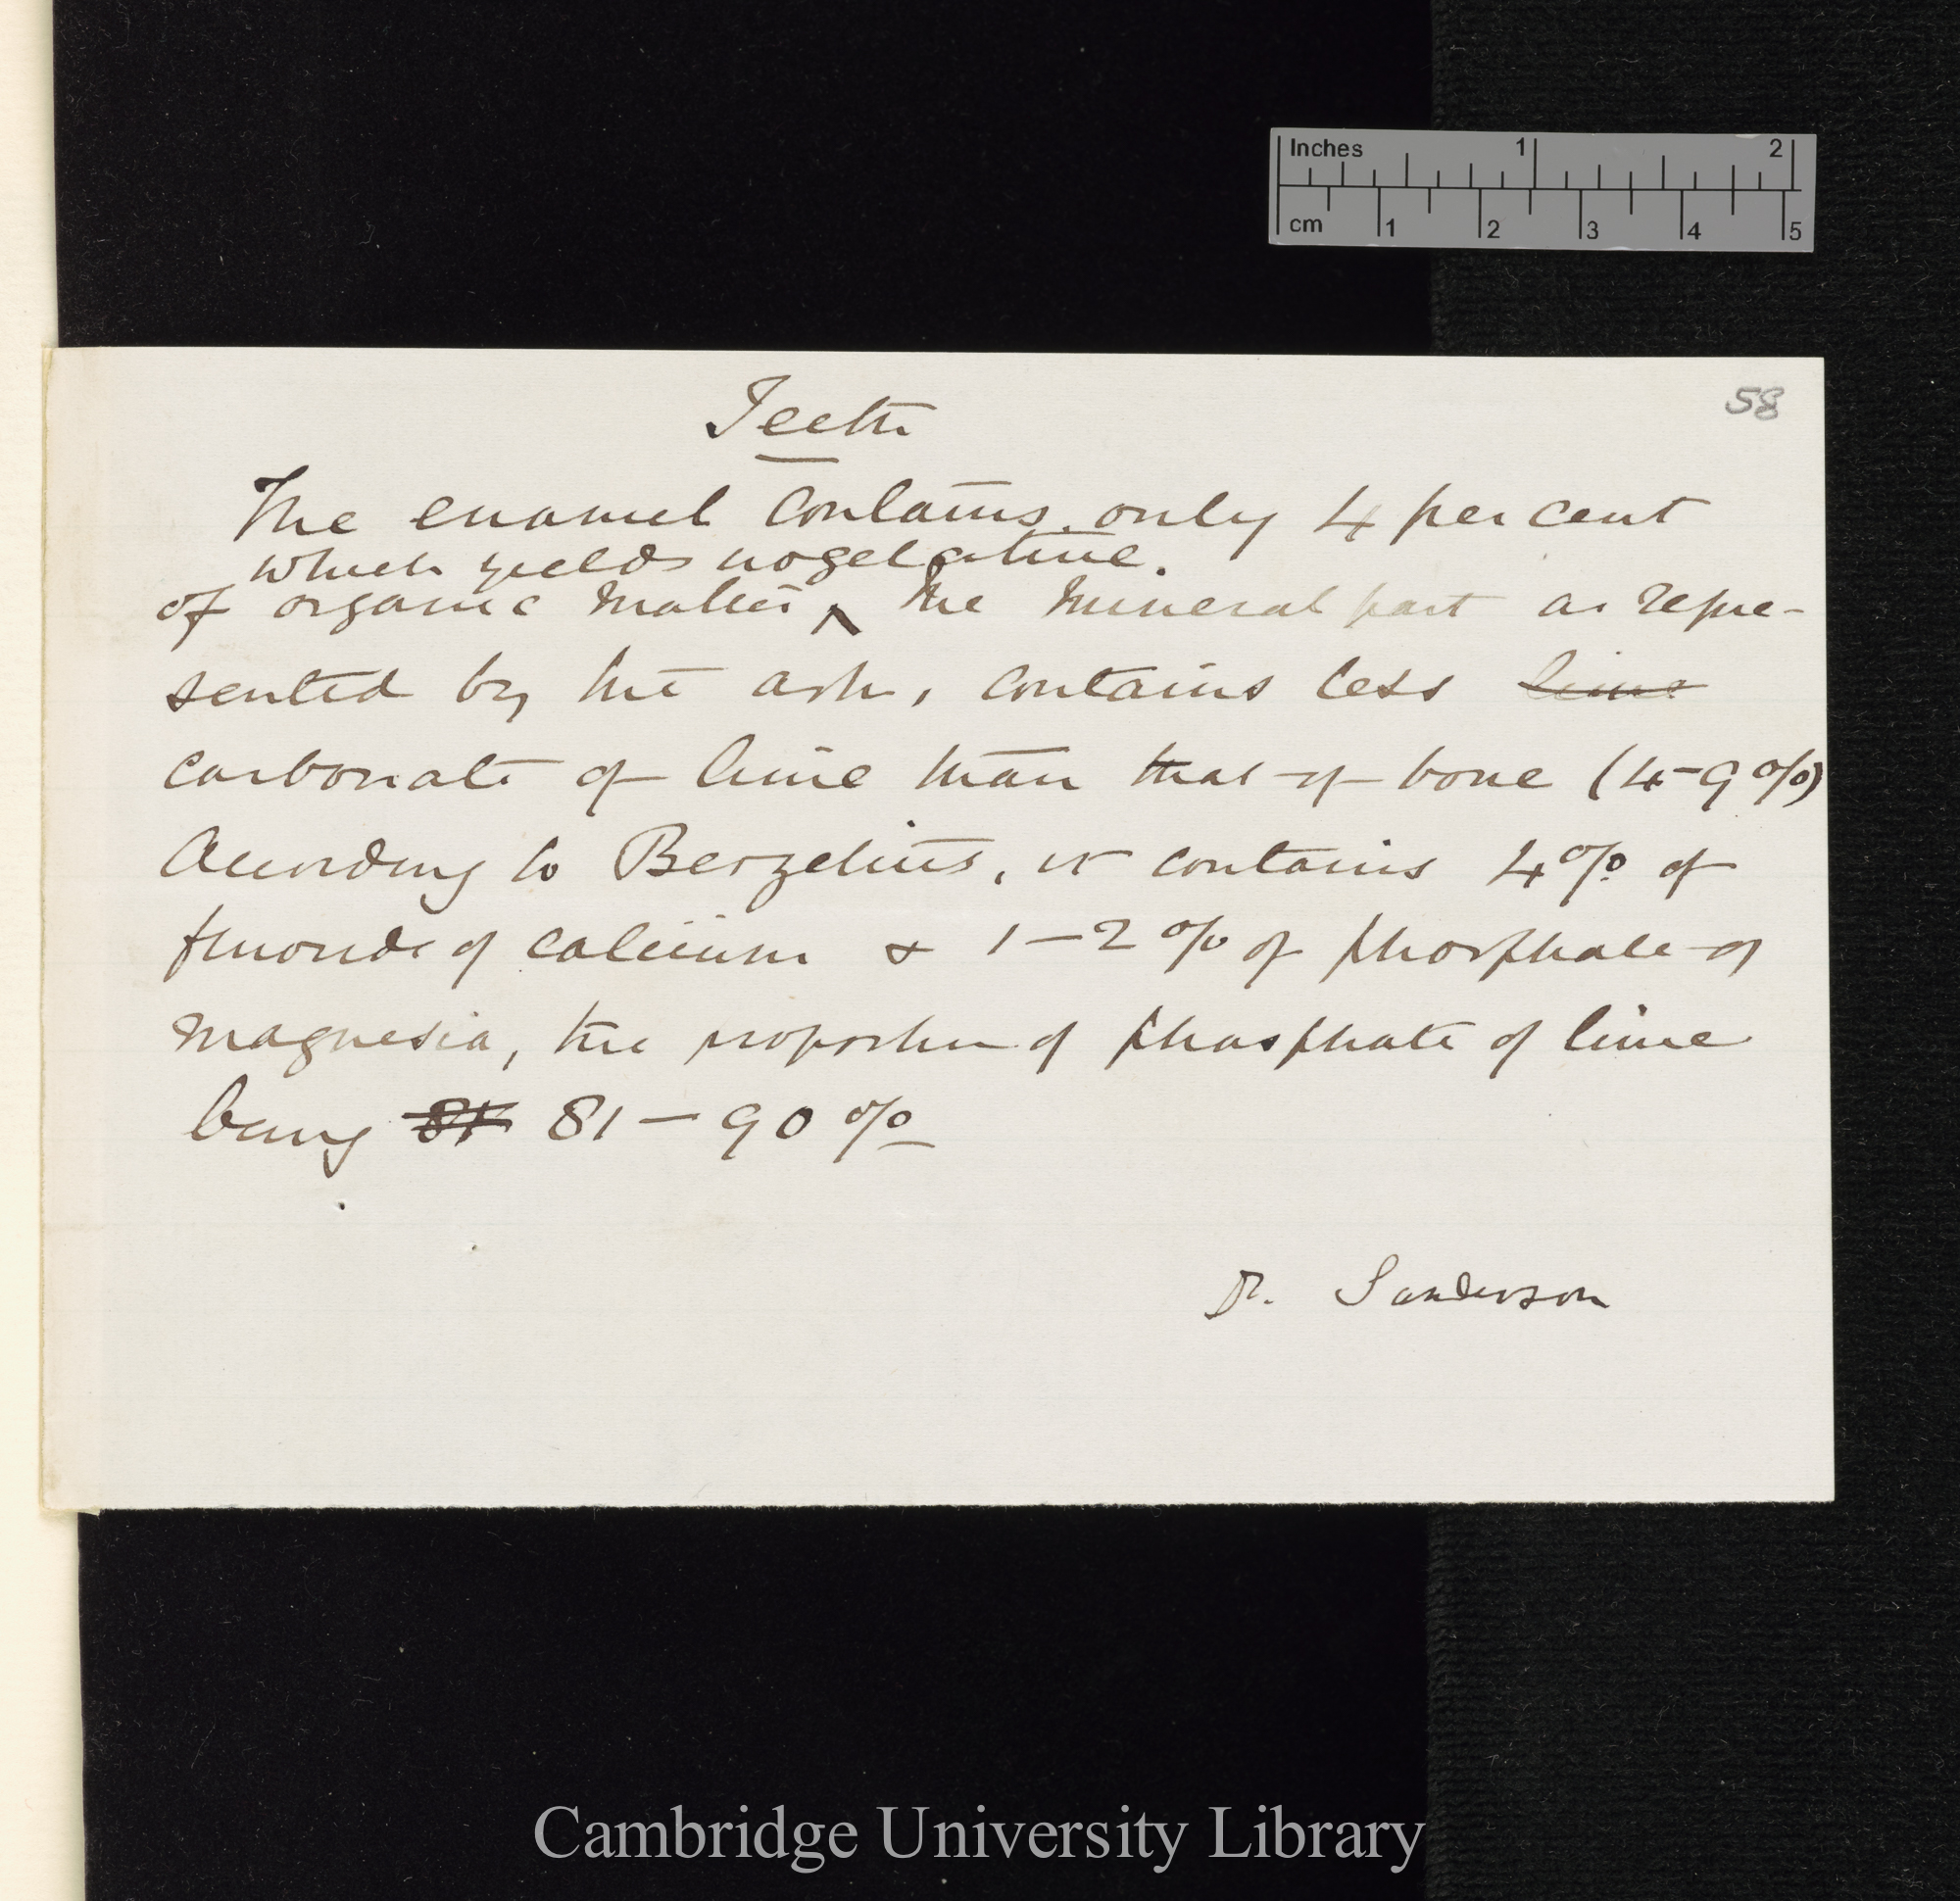 Inches 1 2
cm 1 2 3 4 5
58
Teeth
The enamel contains only 4 per cent
which yields no gelatine.
of organic matter ^ The mineral part as repre-
sented by the ash, contains less lime
carbonate of lime than that of bone (4-9%)
According to Berzelius, it contains 4% of
fluoride of calcium & 1-2% of phosphate of
magnesia, the proportion of phosphate of lime
being 81 81-90%
Dr. Sanderson
Cambridge University Library